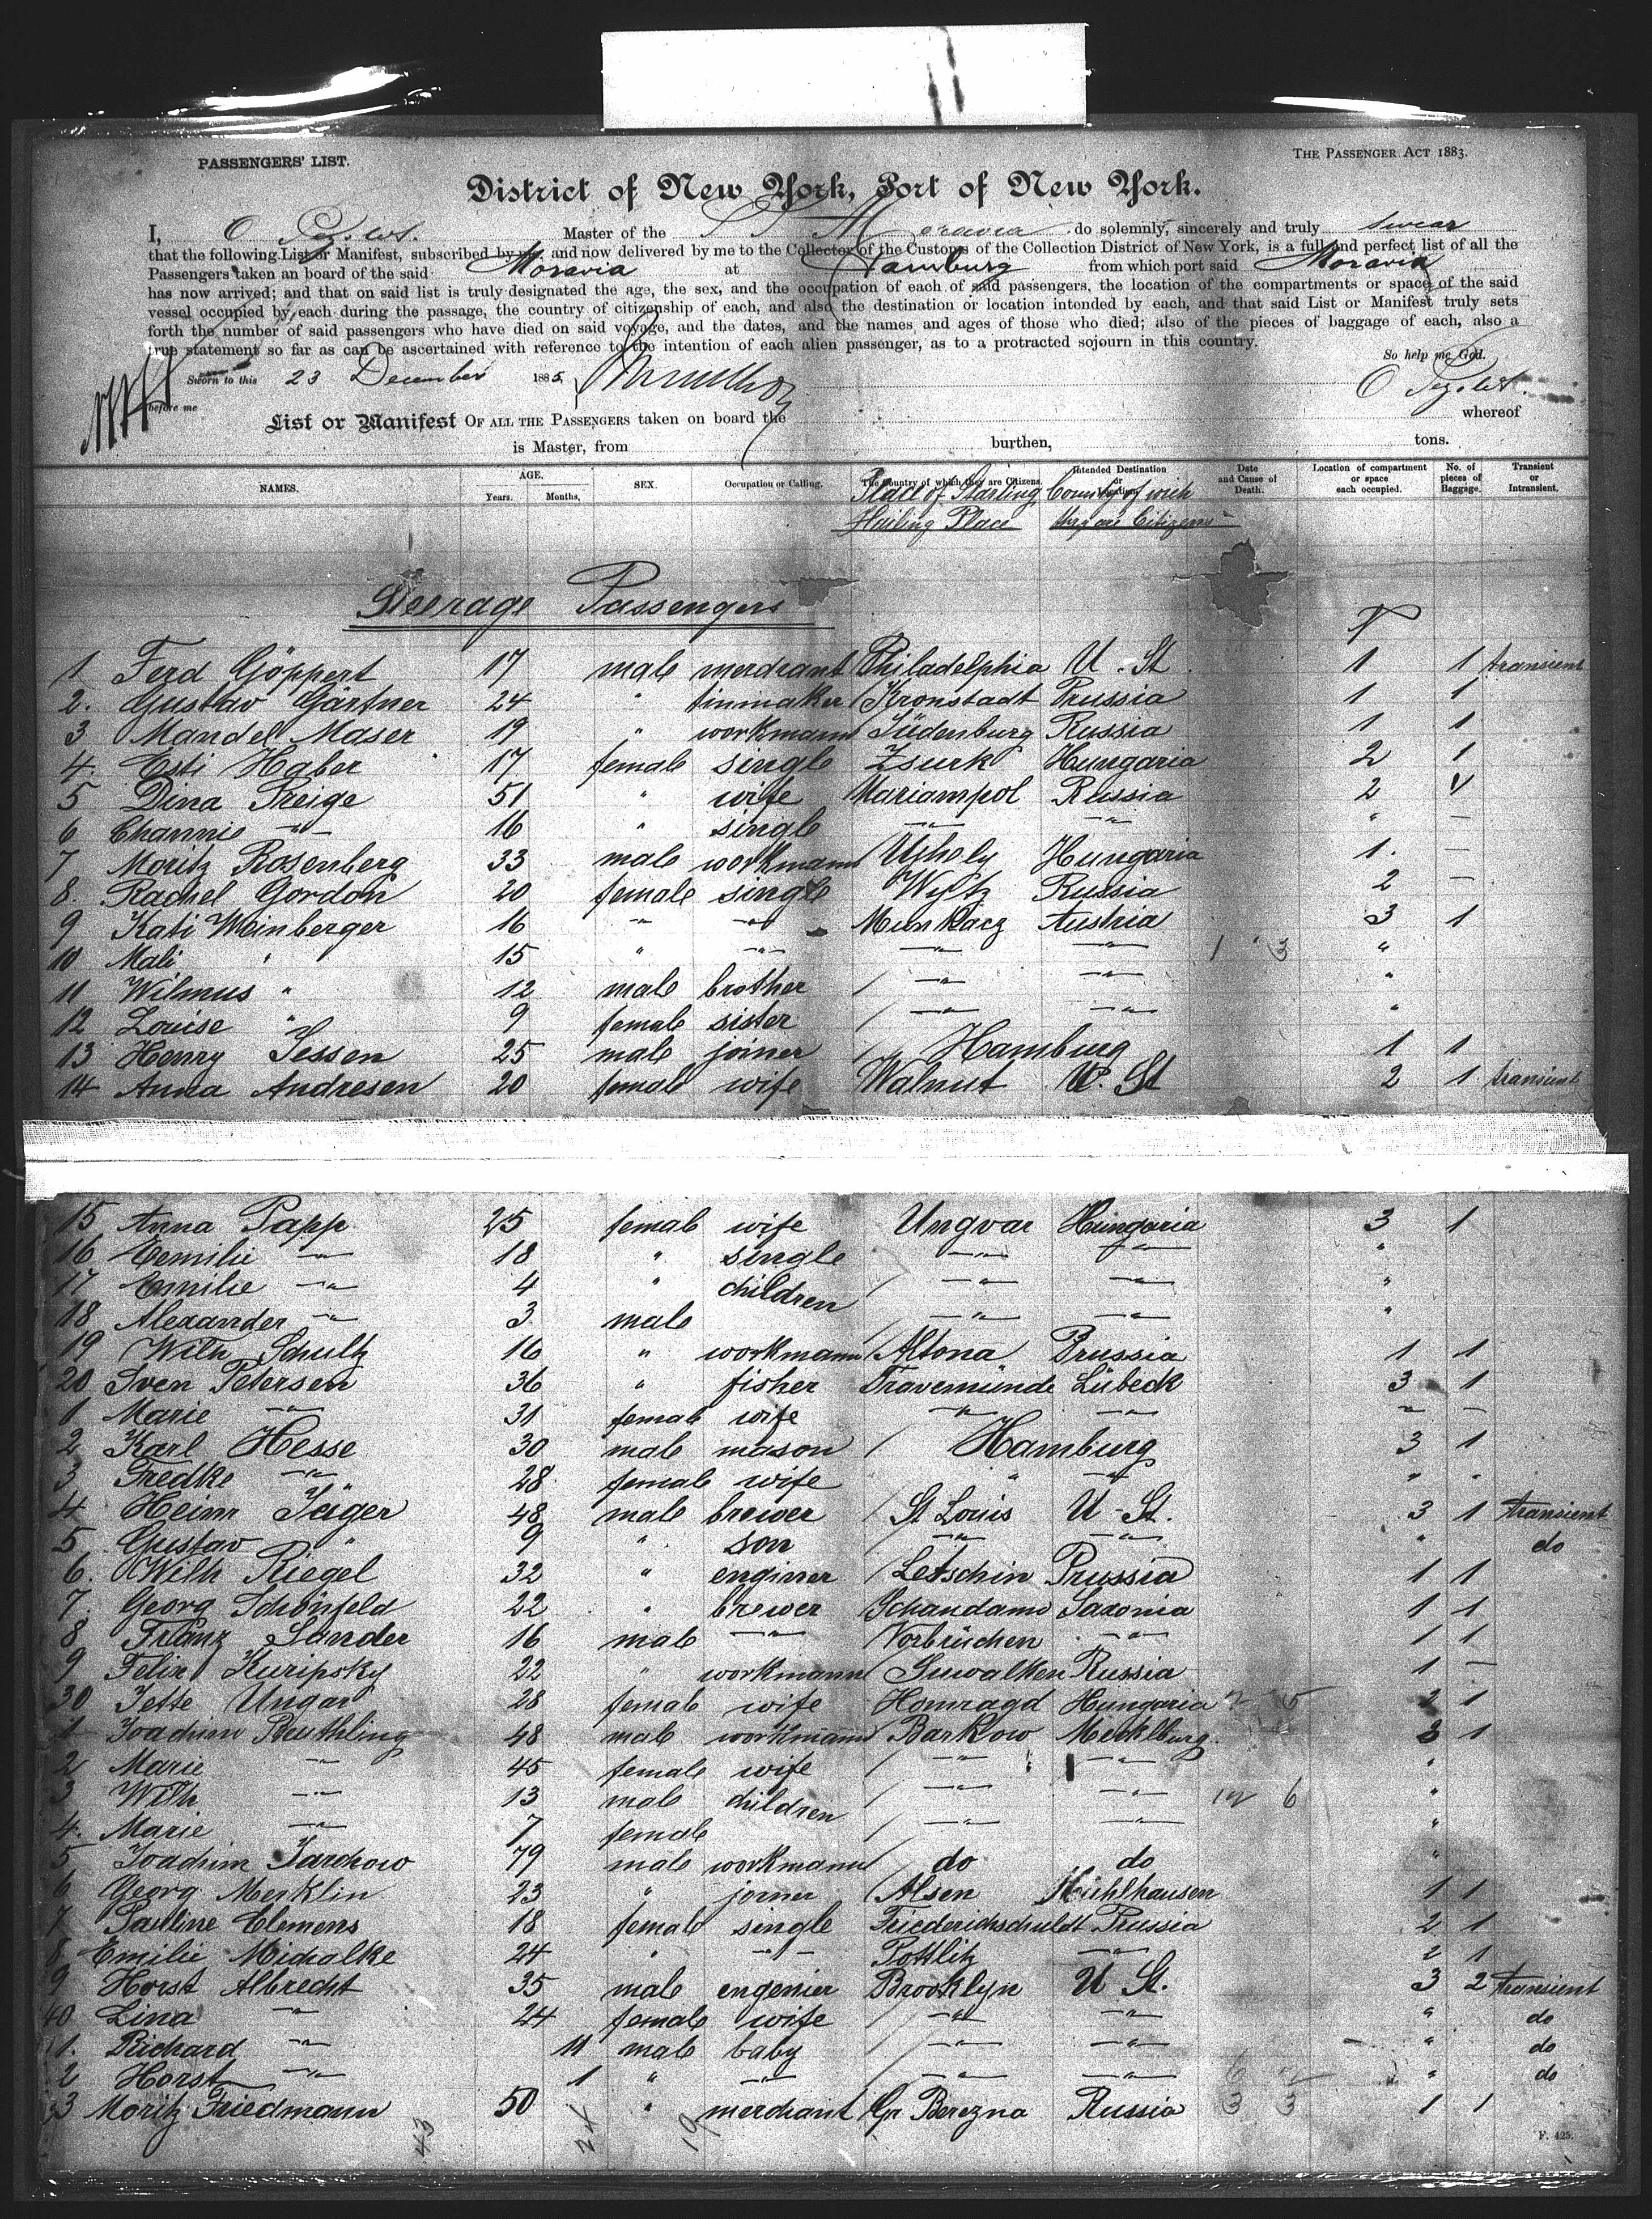 PASSENGERS' LIST.
THE PASSENGER ACT 1883.
District of New York, Port of New York.
I, O Master of the S S Moravia do solemnly, sincerely and truly swear
that the following List or Manifest, subscribed by me, and now delivered by me to the Collector of the Customs of the Collection District of New York, is a full and perfect list of all the
Passengers taken an board of the said Moravia at Hamburg from which port said Moravia
has now arrived; and that on said list is truly designated the age, the sex, and the occupation of each of said passengers, the location of the compartments or space of the said
vessel occupied by each during the passage, the country of citizenship of each, and also the destination or location intended by each, and that said List or Manifest truly sets
forth the number of said passengers who have died on said voyage, and the dates, and the names and ages of those who died; also of the pieces of baggage of each, also a
true statement so far as can be ascertained with reference to the intention of each alien passenger, as to a protracted sojourn in this country.
So help me God.
Sworn to this 23 December 1885,
before me
List or Manifest OF ALL THE PASSENGERS taken on board the whereof
is Master, from burthen, tons.
NAMES. AGE. Years. Months. SEX. Occupation or Calling. The Country of which they are Citizens. Intended Destination or Date and Cause of Death. Location of compartment or space each occupied. No. of pieces of Baggage. Transient or Intransient.
Place of Starting County of wich
Hailing Place they are Citizens
Steerage Passengers
1 Ferd Göppert 17 male merchant Philadelphia U. St 1 1 transient
2. Gustav Gärtner 24 " tinmaker Kronstadt Prussia 1 1
3 Mandel Maser 19 " workmann Jüdenburg Russia 1 1
4. Esti Haber 17 female single Zsurk Hungaria 2 1
5 Dina Preige 51 " wife Mariampol Russia 2 4
6 Channie -"- 16 " single -"- -"- " -
7 Moritz Rosenberg 33 male workmann Ujhely Hungaria 1. -
8. Rachel Gordon 20 female single Russia 2 -
9 Kati Weinberger 16 -"- -"- Munkacz Austria 3 1
10 Mali " 15 " -"- -"- -"- 1 3 "
11 Wilmus " 12 male brother -"- -"- "
12 Louise " 9 female sister -"- -"- "
13 Henry Jessen 25 male joiner Hamburg 1 1
14 Anna Andresen 20 female wife Walnut U. St 2 1 transient
15 Anna Papp 25 female wife Ungvar Hungaria 3 1
16 Eemilie -"- 18 " single -"- -"- "
17 Emilie -"- 4 " children -"- -"- "
18 Alexander -"- 3 male -"- -"- "
19 Wilh Schultz 16 " workmann Altona Prussia 1 1
20 Sven Petersen 36 " fisher Travemünde Lübeck 3 1
1 Marie -"- 31 female wife -"- -"- -"- -
2 Karl Hesse 30 male mason Hamburg 3 1
3 Fredke -"- 28 female wife " -"- " "
4 Heinr Jäger 48 male brewer St Louis U-St. 3 1 transient
5 Gustav " 9 " son -"- -"- " do
6. Wilh Riegel 32 " enginer Letschin Prussia 1 1
7. Georg Schönfeld 22 " brewer Schandamo Saxonia 1 1
8 Franz Sander 16 male -"- Vorbrüchen -"- 1 1
9 Felix Kuripsky 22 " workmann Suwalken Russia 1 -
30 Jette Ungar 28 female wife Homragd Hungaria 5 2 1
1 Joachim Reuthling 48 male workmann Barkow Mecklburg. 3 1
2 Marie -"- 45 female wife -"- -"- "
3 Wilh -"- 13 male children -"- -"- 6 "
4. Marie -"- 7 female -"- -"- "
5 Joachim Jarchow 79 male workmann do do "
6 Georg Merklin 23 " joiner Alsen Mühlhausen 1 1
7 Pauline Clemens 18 female single Friederichschuldt Prussia 2 1
8 Emilie Michalke 24 " -"- Pottlitz -"- 2 1
9 Horst Albrecht 35 male engenier Brooklyn U St. 3 2 transient
40 Lina -"- 24 female wife -"- -"- " do
1. Richard -"- 11 male baby -"- -"- " do
2 Horst -"- 1 " -"- -"- -"- " do
3 Moritz Friedmann 50 " merchant Gr Berezna Russia 3 3 1 1
43 24 19
F. 425.